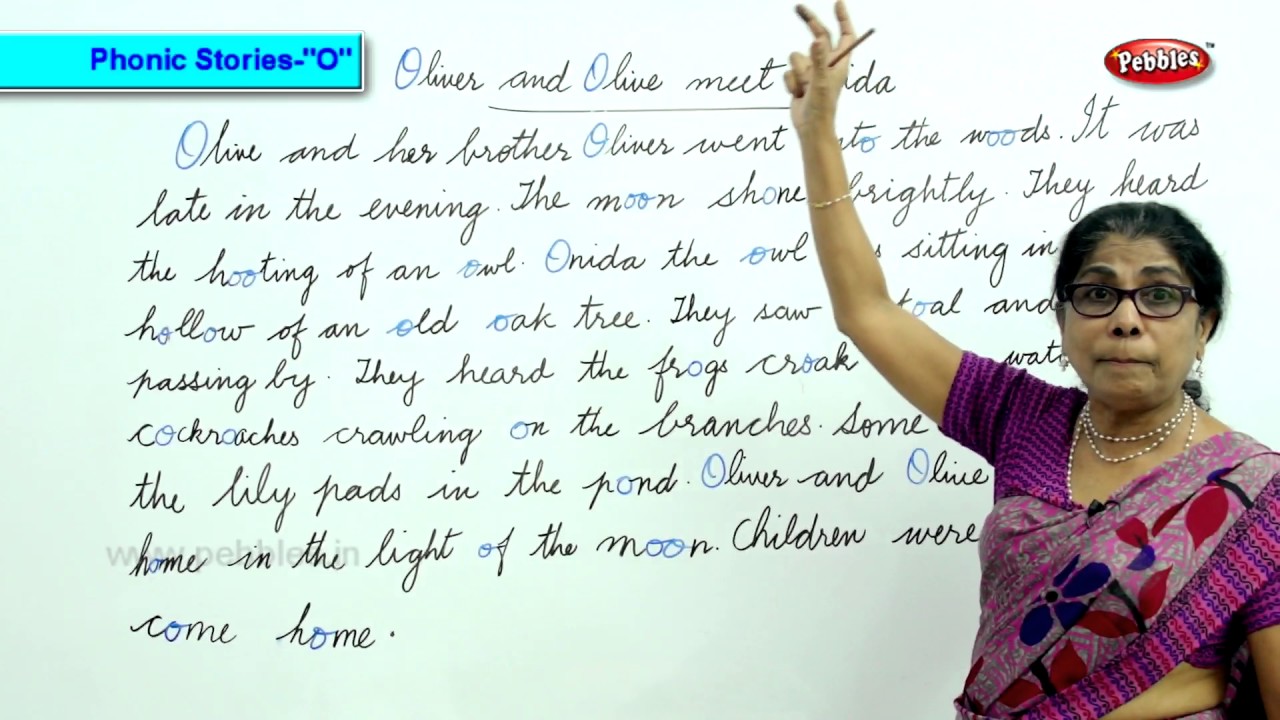 Phonic Stories-"O"
Pebbles™
Oliver and Olive meet ida
Olive and her brother Oliver went to the woods. It was
late in the evening. The moon shone brightly. They heard
the hooting of an owl. Onida the owl sitting in
hollow of an old oak tree. They saw and
passing by. They heard the frogs croak
cockroaches crawling on the branches. Some
the lily pads in the pond. Oliver and Olive
home in the light of the moon. Children were
come home.
www.pebbles.in